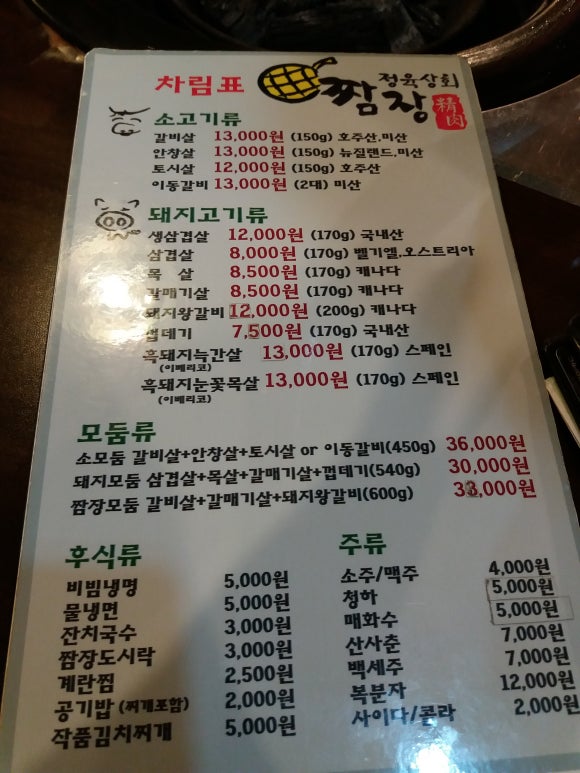 차림표
짬장
정육상회
精肉
소고기류
갈비살 13,000원 (150g) 호주산,미산
안창살 13,000원 (150g) 뉴질랜드,미산
토시살 12,000원 (150g) 호주산
이동갈비 13,000원 (2대) 미산
돼지고기류
생삼겹살 12,000원 (170g) 국내산
삼겹살 8,000원 (170g) 벨기엘,오스트리아
목 살 8,500원 (170g) 캐나다
갈매기살 8,500원 (170g) 캐나다
돼지왕갈비 12,000원 (200g) 캐나다
껍데기 7,500원 (170g) 국내산
흑돼지늑간살 13,000원 (170g) 스페인
(이베리코)
흑돼지눈꽃목살 13,000원 (170g) 스페인
(이베리코)
모둠류
소모둠 갈비살+안창살+토시살 or 이동갈비(450g) 36,000원
돼지모둠 삼겹살+목살+갈매기살+껍데기(540g) 30,000원
짬장모둠 갈비살+갈매기살+돼지왕갈비(600g) 33,000원
후식류
비빔냉명 5,000원
물냉면 5,000원
잔치국수 3,000원
짬장도시락 3,000원
계란찜 2,500원
공기밥 (찌개포함) 2,000원
작품김치찌개 5,000원
주류
소주/맥주 4,000원
청하 5,000원
매화수 5,000원
산사춘 7,000원
백세주 7,000원
복분자 12,000원
사이다/콜라 2,000원